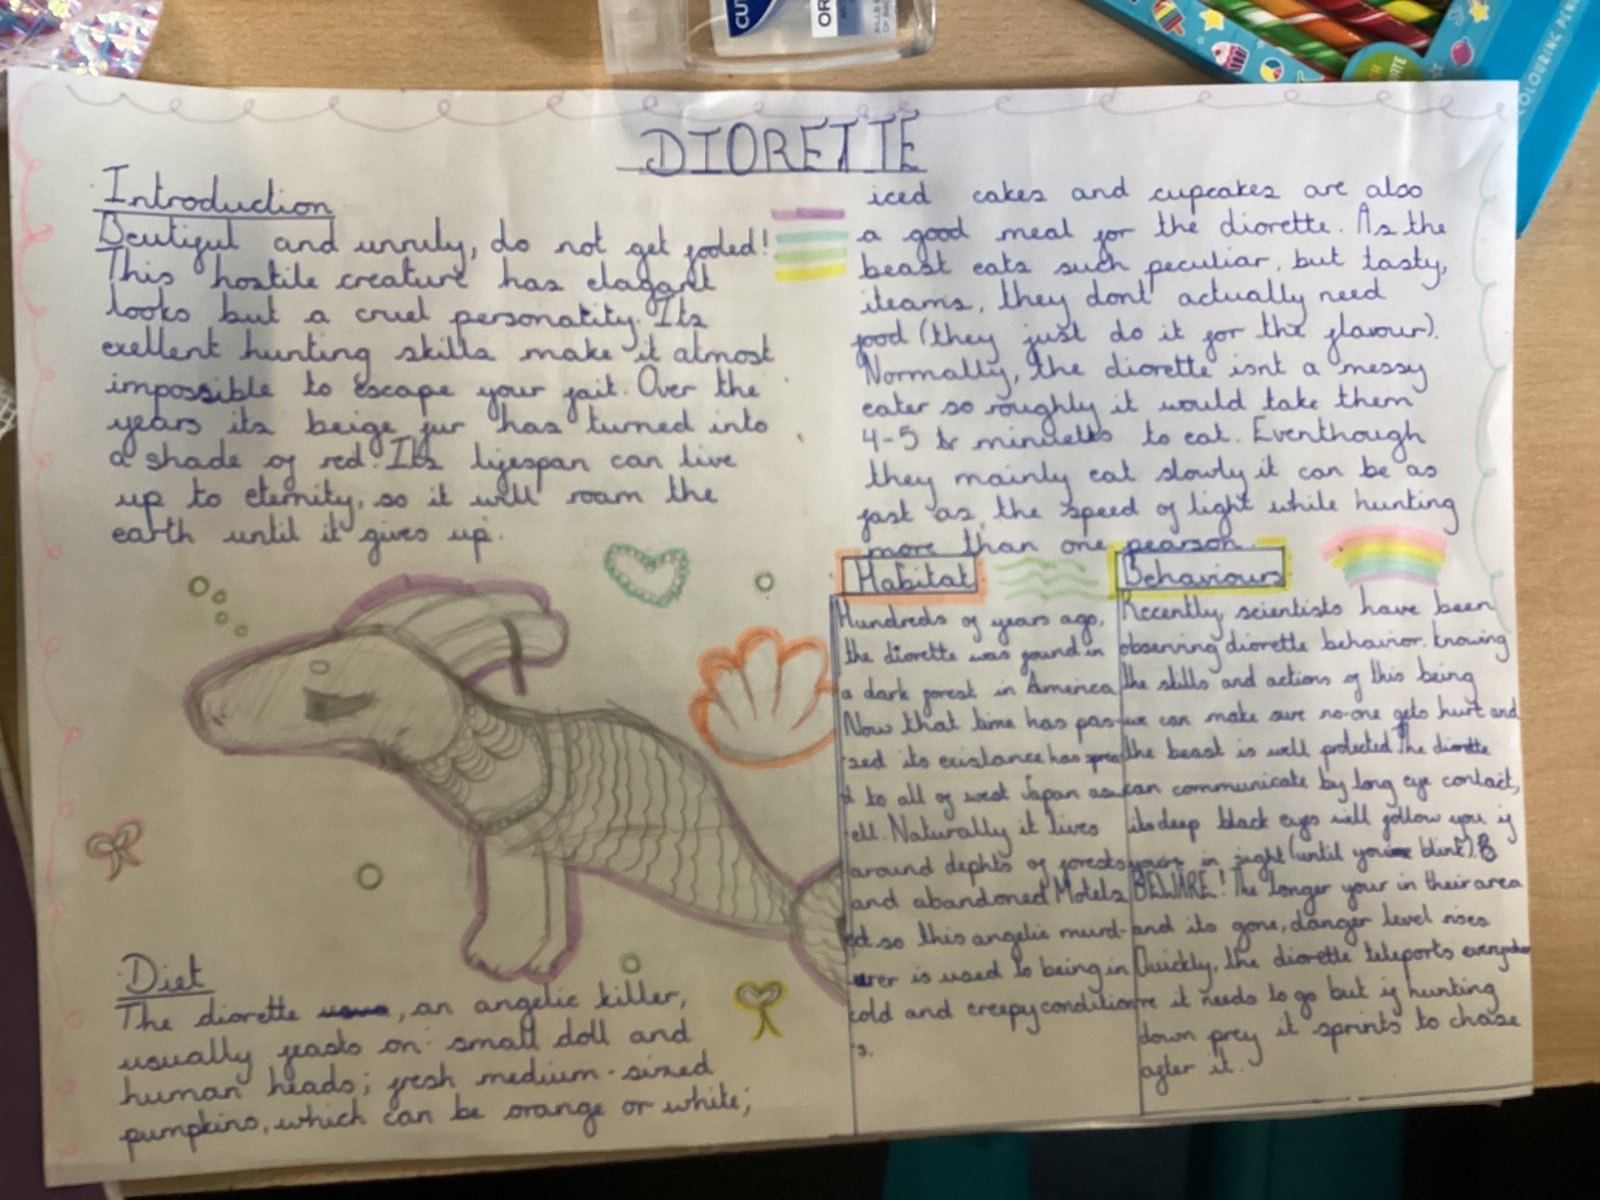 DIORETTE
Introduction
Beutiful and unruly, do not get fooled!
This hostile creature has elagant
looks but a cruel personatity. Its
exellent hunting skills make it almost
impossible to escape your fait. Over the
years its beige fur has turned into
a shade of red. Its lifespan can live
up to eternity, so it will roam the
earth until it gives up.
Diet
The diorette , an angelic killer,
usually feasts on small doll and
human heads; fresh medium-sized
pumpkins, which can be orange or white;
iced cakes and cupcakes are also
a good meal for the diorette. As the
beast eats such peculiar, but tasty,
iteams, they dont actually need
food (they just do it for the flavour).
Normally, the diorette isnt a messy
eater so roughly it would take them
4-5 minuetts to eat. Eventhough
they mainly eat slowly it can be as
fast as the speed of light while hunting
more than one pearson.
Habitat
Hundreds of years ago,
the diorette was found in
a dark forest in America
Now that time has pas-
sed its existance has sprea
d to all of west Japan as w
ell. Naturally it lives
around dephts of forests
and abandoned Motels
so this angelic murd-
erer is used to being in
cold and creepy condition
s.
Behaviours
Recently scientists have been
observing diorette behavior. Knowing
the skills and actions of this being
we can make sure no-one gets hurt and
the beast is well protected. The diorette
can communicate by long eye contact,
its deep black eyes will follow you if
your in sight (until you blink).
BEWARE! The longer your in their area
and its gone, danger level rises
Quickly, the diorette teleports everywhe
re it needs to go but if hunting
down prey it sprints to chase
after it.
CUT
OR
COLOURING PEN